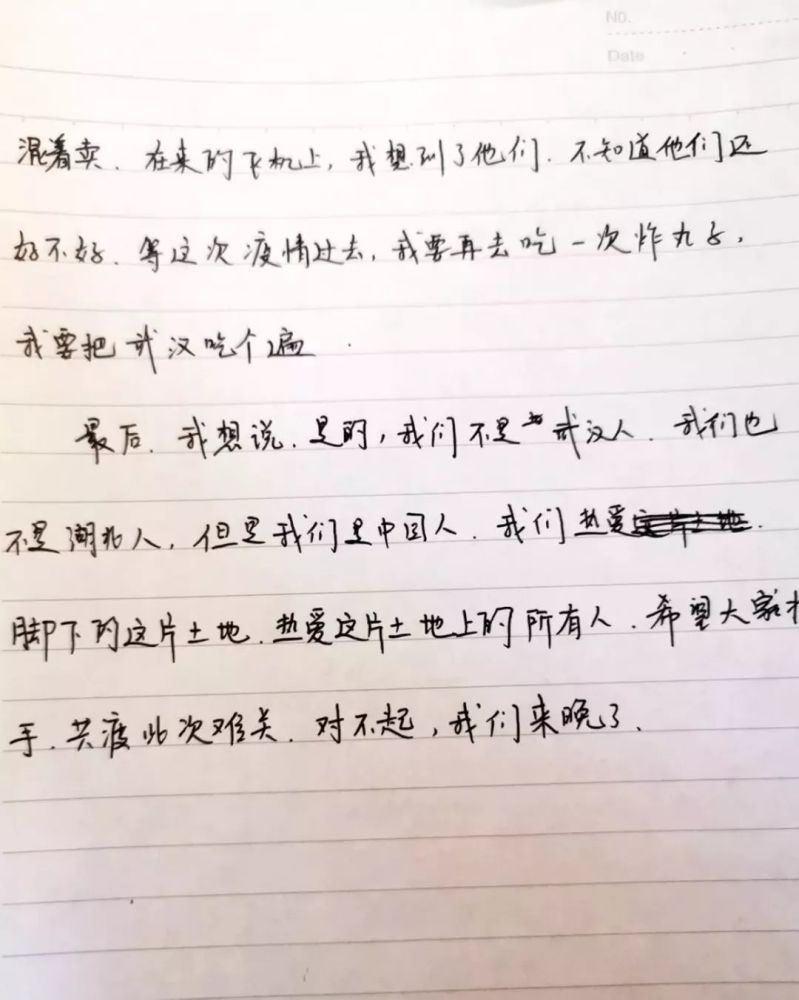 No.
Date
混着卖. 在来的飞机上, 我想到了他们. 不知道他们还
好不好. 等这次疫情过去, 我要再去吃一次炸丸子,
我要把武汉吃个遍.
最后. 我想说. 是的, 我们不是武汉人. 我们也
不是湖北人, 但是我们是中国人. 我们热爱
脚下的这片土地. 热爱这片土地上的所有人. 希望大家
手. 共渡此次难关. 对不起, 我们来晚了.